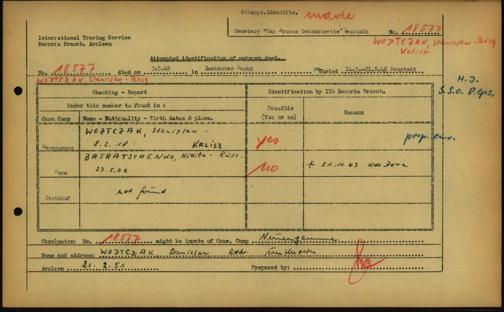 Attempt.identific. made
Cemetery "Cap Arcona Gedenkstette" Neustadt
No. 18577
WOJTCZAK, Stanislaw - Polish
Kalisz
International Tracing Service
Records Branch, Arolsen
Attempted identification of unknown dead.
No. 18577 died on 3.5.45 in Luebecker Bucht Buried Neustadt
WOJTCZAK, Stanislaw - Polish
H.J.
S.S.O. D.Gps.
Checking - Report
Identification by ITS Records Branch.
Under this number is found in :
Possible
(Yes or no)
Reason
Conc. Camp
Name - Nationality - Birth dates & place.
Neuengamme
WOJTCZAK, Stanislaw -
8.2.18 : KALISZ
yes
Dora
BATRATSCHENKO, Nikita - Russ.
27.5.08
no
+ 21.11.43 Kdo Dora
Stutthof
not found
Conclusion: No. 18577 might be inmate of Conc. Camp Neuengamme
Name and address: WOJTCZAK Stanislaw Addr. unknown
Arolsen 21.2.51 Prepared by: